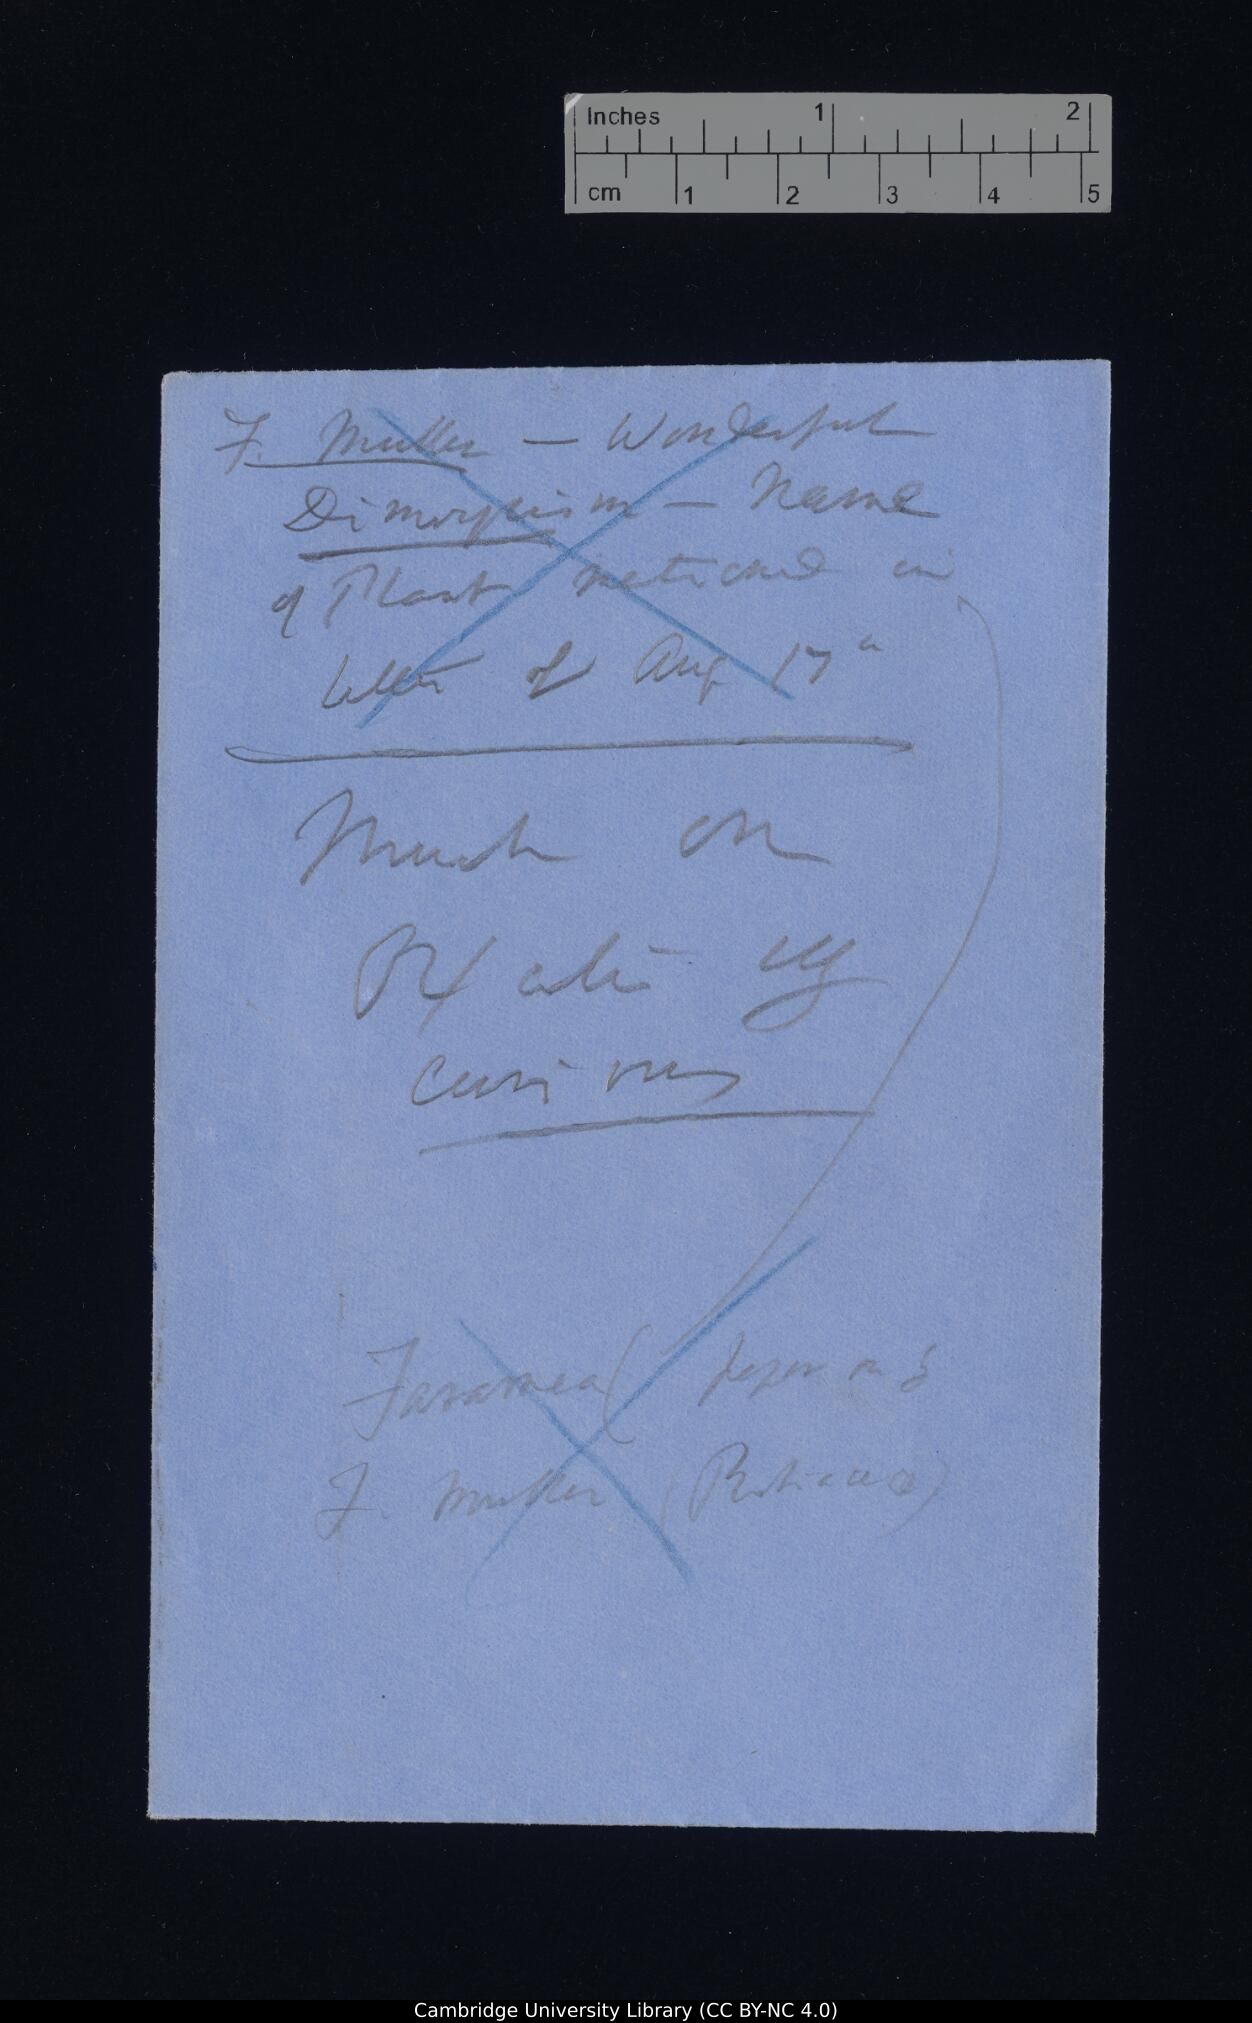 Inches 1 2
cm 1 2 3 4 5
F. Muller — Wonderful
Dimorphism — Name
of Plant noticed in
letter of Aug 17
Much on
Oxalis
curious
Faramea (
F. Muller (Rubiaceæ)
Cambridge University Library (CC BY-NC 4.0)